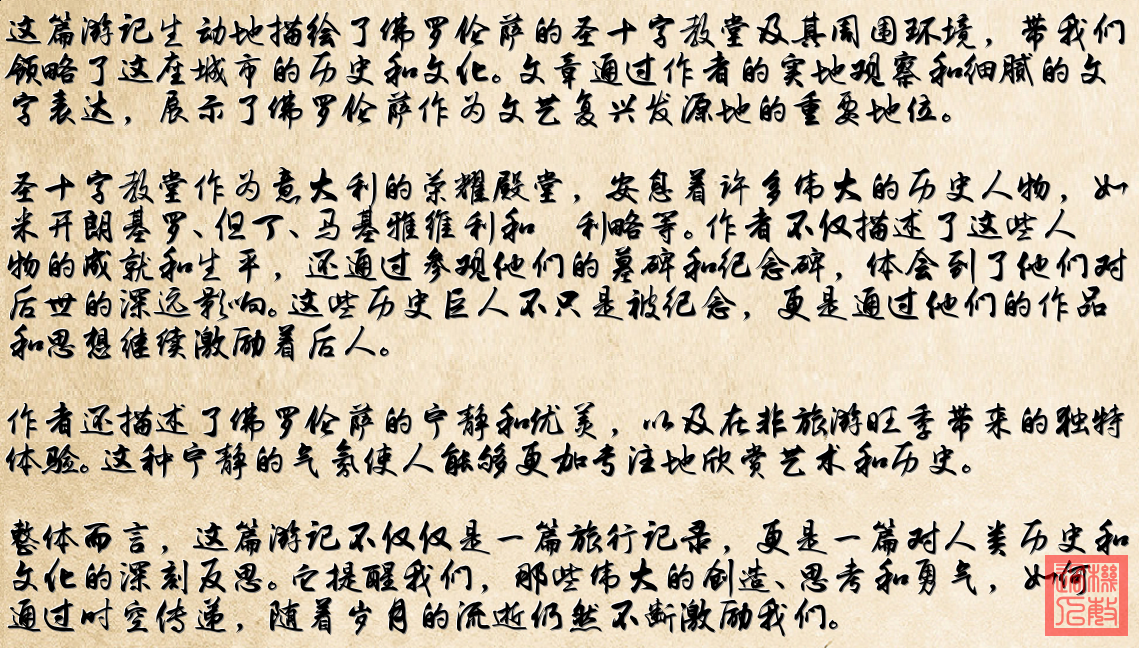 这篇游记生动地描绘了佛罗伦萨的圣十字教堂及其周围环境，带我们
领略了这座城市的历史和文化。文章通过作者的实地观察和细腻的文
字表达，展示了佛罗伦萨作为文艺复兴发源地的重要地位。
圣十字教堂作为意大利的荣耀殿堂，安息着许多伟大的历史人物，如
米开朗基罗、但丁、马基雅维利和 利略等。作者不仅描述了这些人
物的成就和生平，还通过参观他们的墓碑和纪念碑，体会到了他们对
后世的深远影响。这些历史巨人不只是被纪念，更是通过他们的作品
和思想继续激励着后人。
作者还描述了佛罗伦萨的宁静和优美，以及在非旅游旺季带来的独特
体验。这种宁静的气氛使人能够更加专注地欣赏艺术和历史。
整体而言，这篇游记不仅仅是一篇旅行记录，更是一篇对人类历史和
文化的深刻反思。它提醒我们，那些伟大的创造、思考和勇气，如何
通过时空传递，随着岁月的流逝仍然不断激励我们。